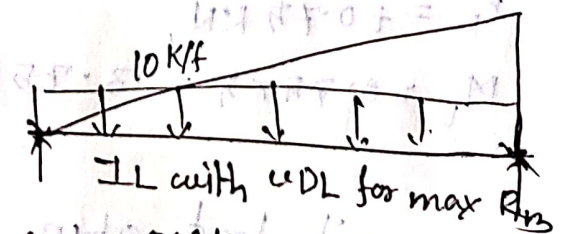 10 K/f
IL with UDL for max R_B